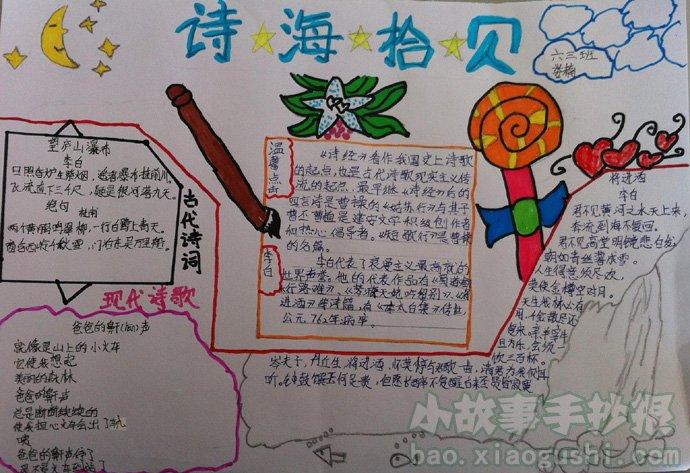 诗海拾贝
六三班
望庐山瀑布
李白
日照香炉生紫烟,遥看瀑布挂前川。
飞流直下三千尺,疑是银河落九天。
绝句
杜甫
两个黄鹂鸣翠柳,一行白鹭上青天。
窗含西岭千秋雪,门泊东吴万里船。
古代诗词
现代诗歌
爸爸的鼾(hān)声
就像是山上的小火车
它使我想起
美丽的森林
爸爸的鼾声
总是断断续续的
使我担心火车会出了轨
咦
爸爸的鼾声停了
是不是火车到站了
温馨点击
《诗经》看作我国史上诗歌
的起点,也是古代诗歌现实主义传
流的起点。最早继《诗经》后的
四言诗是曹操的《
曹丕曹植是建安文学积级创作者
和热心倡导者。《短歌行》是曹操
的名篇。
李白
李白代表了浪漫主义最高成的
世界声誉。他的代表作品有《蜀道难》
《行路难》、《梦游天姥吟留别》、《将
进酒》等诗篇,有《李太白集》传世,
公元762年病卒
将进酒
李白
君不见黄河之水天上来,
奔流到海不复回。
君不见高堂明镜悲白发,
朝如青丝暮成雪。
人生得意须尽欢,
莫使金樽空对月。
天生我材必有
用,千金散尽还
复来。烹羊宰牛
且为乐,会须一
饮三百杯。
岑夫子,丹丘生,将进酒,杯莫停。与君歌一曲,请君为我倾耳
听。钟鼓馔玉何足贵,但愿长醉不复醒。古来圣贤皆寂寞
小故事手抄报
bao.xiaogushi.com